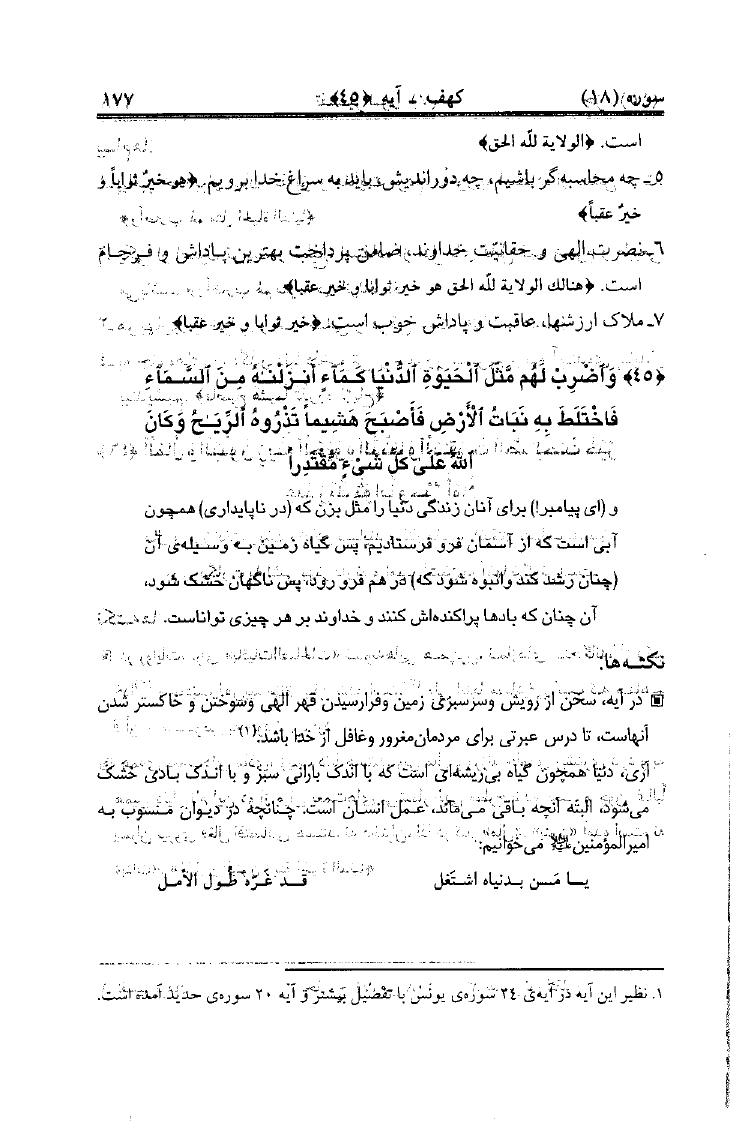 سوره (۱۸) کهف - آیه ﴿۴۵﴾ ۱۷۷
است. ﴿الولایة للّه الحق﴾
۵ـ چه محاسبه‌گر باشیم، چه دوراندیش، باید به سراغ خدا برویم. ﴿هو خیرٌ ثواباً و
خیرٌ عقباً﴾
۶ـ نصرت الهی و حقانیّت خداوند، ضامن پرداخت بهترین پاداش و فرجام
است. ﴿هنالك الولایة للّه الحق هو خیر ثوابا و خیر عقبا﴾
۷ـ ملاک ارزشها، عاقبت و پاداش خوب است. ﴿خیر ثوابا و خیر عقبا﴾
﴿٤٥﴾ وَٱضْرِبْ لَهُم مَّثَلَ ٱلْحَیَوٰةِ ٱلدُّنْیَا كَمَآءٍ أَنزَلْنَـٰهُ مِنَ ٱلسَّمَآءِ
فَاخْتَلَطَ بِهِ نَبَاتُ ٱلْأَرْضِ فَأَصْبَحَ هَشِیماً تَذْرُوهُ ٱلرِّیَـٰحُ وَكَانَ
ٱللَّهُ عَلَىٰ كُلِّ شَیْءٍ مُّقْتَدِراً
و (ای پیامبر!) برای آنان زندگی دنیا را مَثل بزن که (در ناپایداری) همچون
آبی است که از آسمان فرو فرستادیم، پس گیاه زمین به وسیله‌ی آن
(چنان رشد کند وانبوه شود که) در هم فرو رود، پس ناگهان خشک شود،
آن چنان که بادها پراکنده‌اش کنند و خداوند بر هر چیزی تواناست.
نکته‌ها:
▣ در آیه، سخن از رویش وسرسبزی زمین وفرارسیدن قهر الهی وسوختن و خاکستر شدن
آنهاست، تا درس عبرتی برای مردمان مغرور وغافل از خدا باشد.(۱)
آری، دنیا همچون گیاه بی‌ریشه‌ای است که با اندک بارانی سبز و با اندک بادی خشک
می‌شود، البته آنچه باقی می‌ماند، عمل انسان است. چنانچه در دیوان منسوب به
امیرالمؤمنین می‌خوانیم:
یـا مَـن بـدنیاه اشـتغل قـد غَـرّه طُـول الأمـل
۱. نظیر این آیه در آیه‌ی ۲۴ سوره‌ی یونس با تفصیل بیشتر و آیه ۲۰ سوره‌ی حدید آمده است.